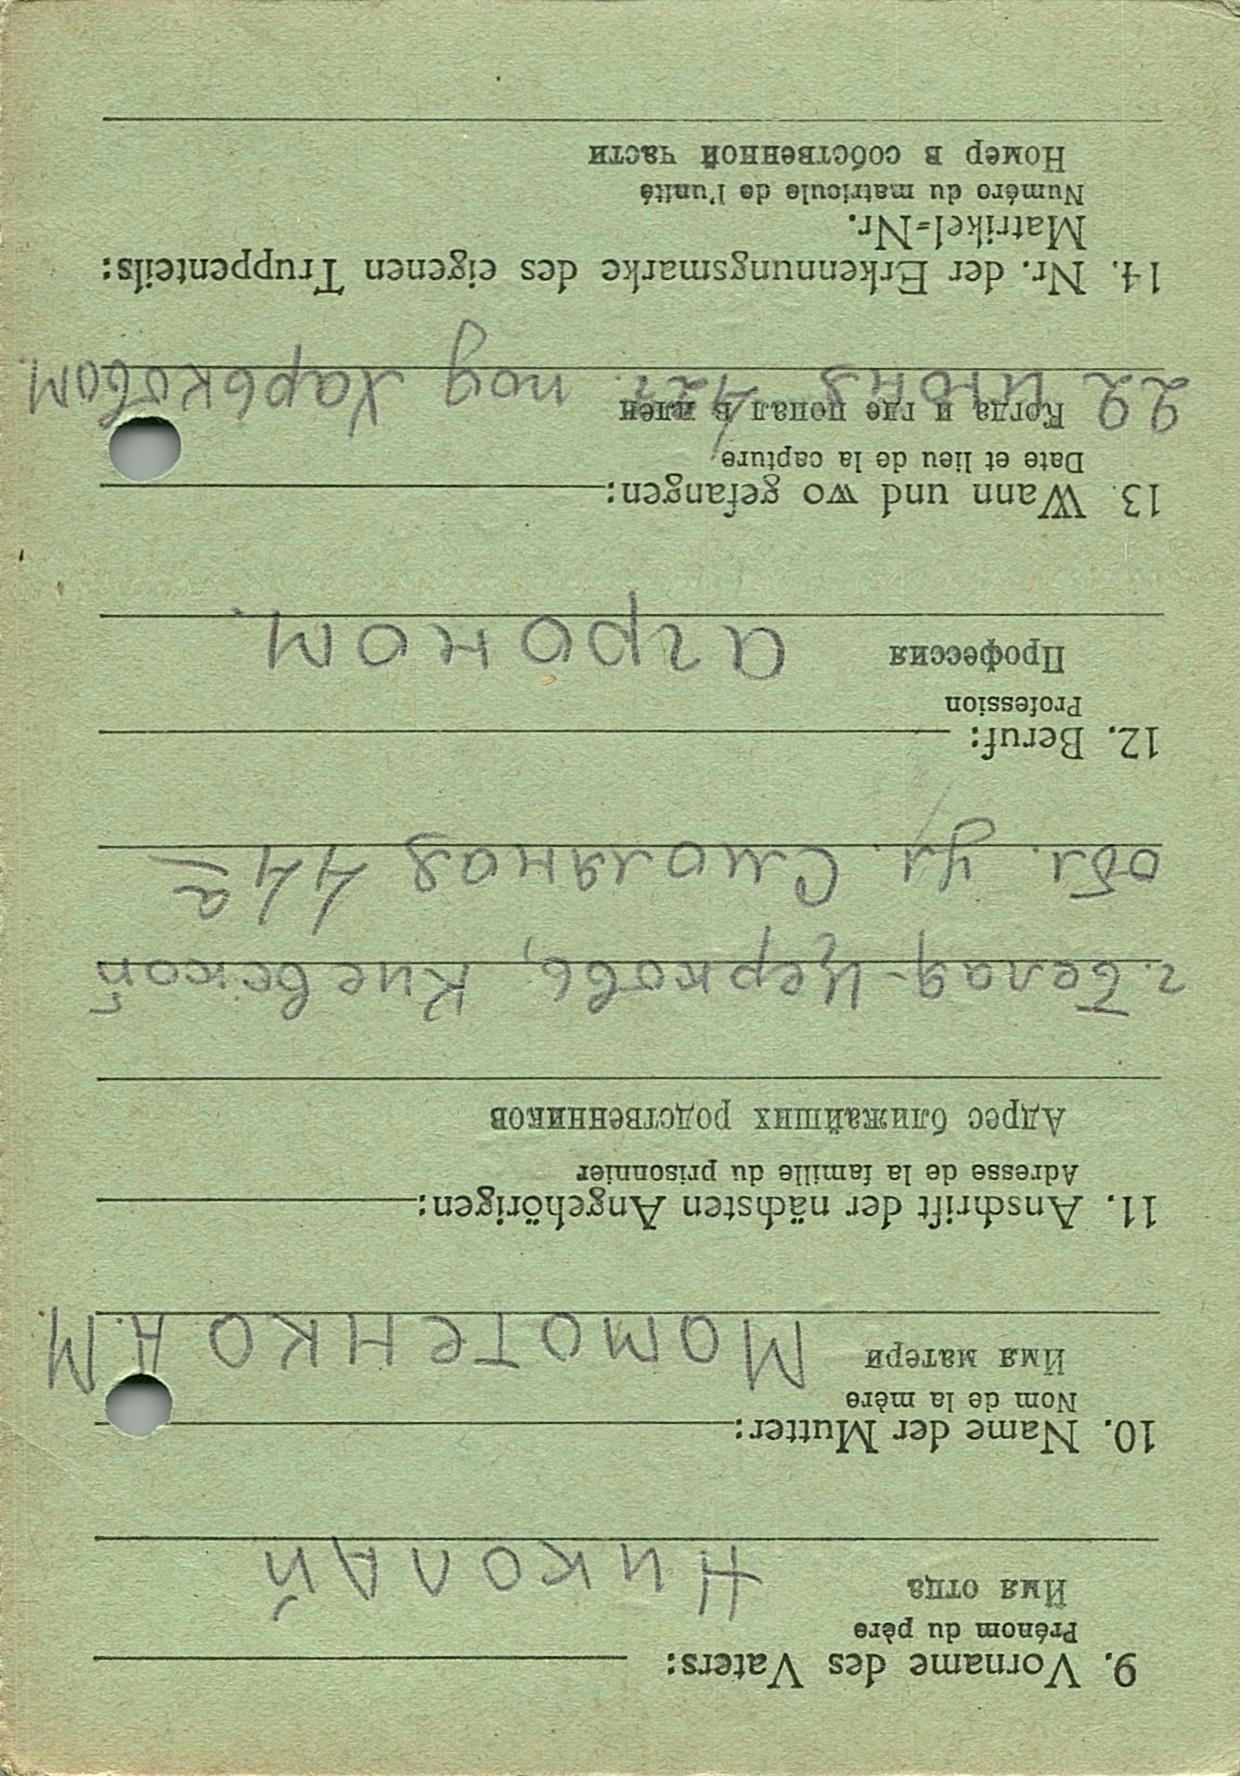 9. Vorname des Vaters:
Prénom du père
Имя отца Николай
10. Name der Mutter:
Nom de la mère
Имя матери Момотенко А.М.
11. Anschrift der nächsten Angehörigen:
Adresse de la famille du prisonnier
Адрес ближайших родственников
г. Белая-Церковь, Киевской
обл. ул. Смоляная 44а
12. Beruf:
Profession
Профессия агроном.
13. Wann und wo gefangen:
Date et lieu de la capture
Когда и где попал в плен
22 июня 42г. под Харьковом.
14. Nr. der Erkennungsmarke des eigenen Truppenteils:
Matrikel-Nr.
Numéro du matricule de l'unité
Номер в собственной части